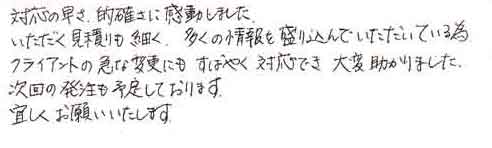 対応の早さ、的確さに感動しました。
いただく見積りも細く、多くの情報を盛り込んでいただいている為
クライアントの急な変更にもすばやく対応でき大変助かりました。
次回の発注も予定しております。
宜しくお願いいたします。